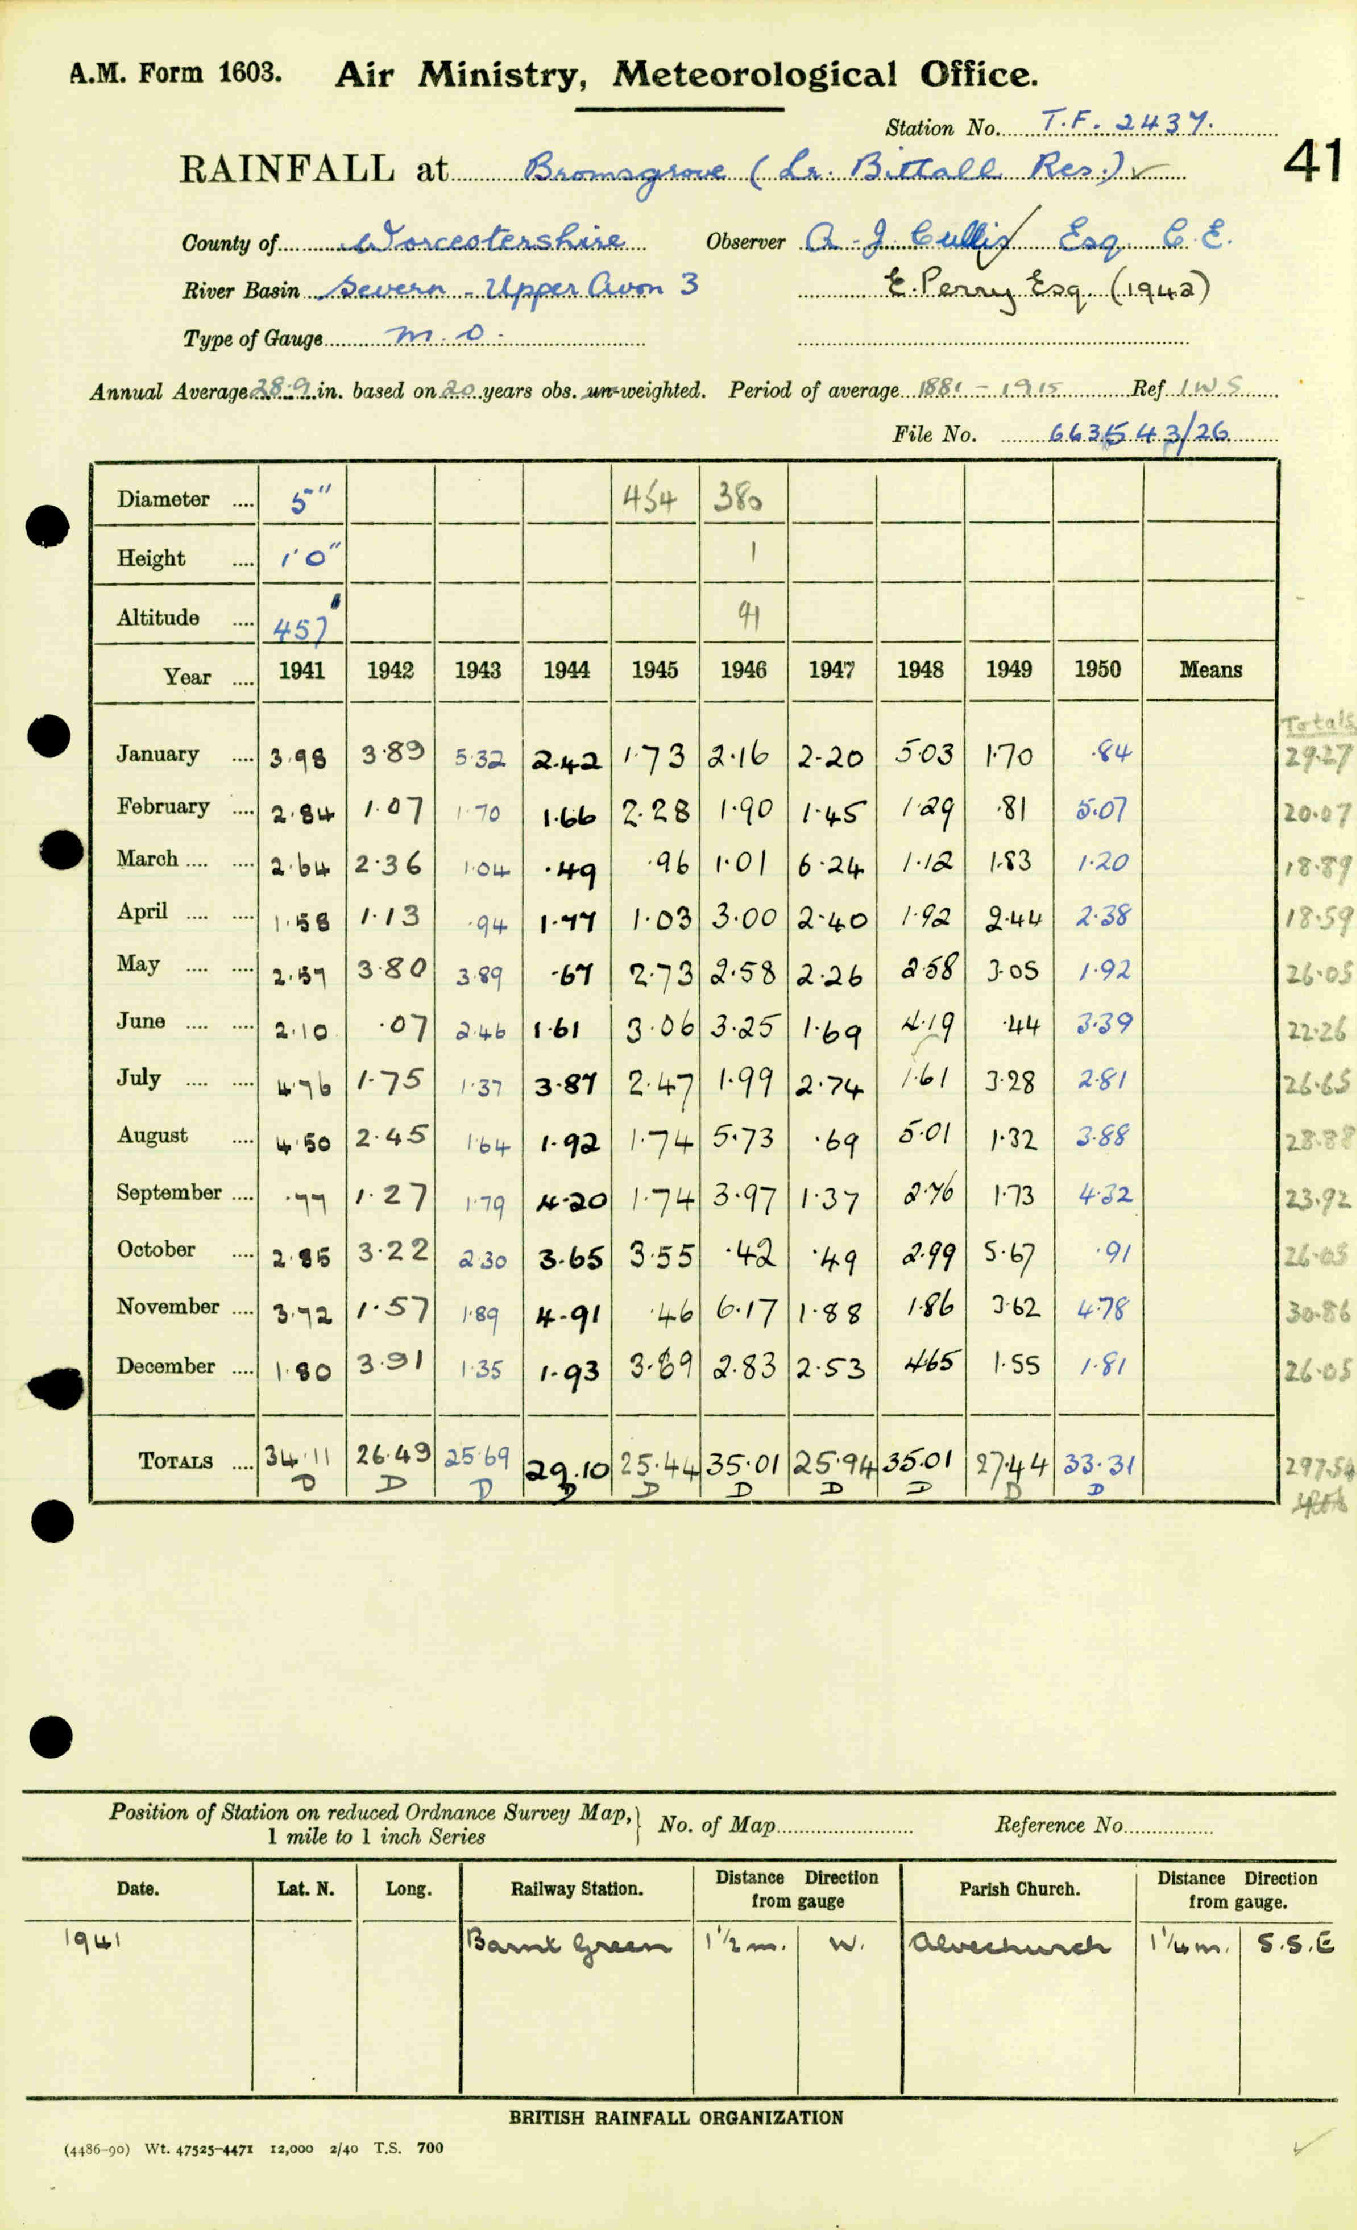 A.M. Form 1603. Air Ministry, Meteorological Office.
Station No. T.F. 2437.
41
RAINFALL at Bromsgrove (Lr. Bittall Res.) ✓
County of Worcestershire Observer A. J. Cullis Esq. C.E.
River Basin Severn - Upper Avon 3 E. Perry Esq. (1942)
Type of Gauge M.O.
Annual Average 28.9 in. based on 20 years obs. un-weighted. Period of average 1881 - 1915 Ref I W S
File No. 663543/26
Diameter .... 5" 454 380
Height .... 1'0" 1
Altitude .... 457' 41
Year .... 1941 1942 1943 1944 1945 1946 1947 1948 1949 1950 Means
Totals
January .... 3.98 3.89 5.32 2.42 1.73 2.16 2.20 5.03 1.70 .84 29.27
February .... 2.84 1.07 1.70 1.66 2.28 1.90 1.45 1.29 .81 5.07 20.07
March .... .... 2.64 2.36 1.04 .49 .96 1.01 6.24 1.12 1.83 1.20 18.89
April .... .... 1.58 1.13 .94 1.77 1.03 3.00 2.40 1.92 2.44 2.38 18.59
May .... .... 2.57 3.80 3.89 .67 2.73 2.58 2.26 2.58 3.05 1.92 26.05
June .... .... 2.10 .07 2.46 1.61 3.06 3.25 1.69 4.19 .44 3.39 22.26
July .... .... 4.76 1.75 1.37 3.87 2.47 1.99 2.74 1.61 3.28 2.81 26.65
August .... 4.50 2.45 1.64 1.92 1.74 5.73 .69 5.01 1.32 3.88 28.88
September .... .77 1.27 1.79 4.20 1.74 3.97 1.37 2.76 1.73 4.32 23.92
October .... 2.85 3.22 2.30 3.65 3.55 .42 .49 2.99 5.67 .91 26.05
November .... 3.72 1.57 1.89 4.91 .46 6.17 1.88 1.86 3.62 4.78 30.86
December .... 1.80 3.91 1.35 1.93 3.69 2.83 2.53 4.65 1.55 1.81 26.05
TOTALS .... 34.11 26.49 25.69 29.10 25.44 35.01 25.94 35.01 27.44 33.31 297.54
D D D D D D D D D D
Position of Station on reduced Ordnance Survey Map, } No. of Map Reference No.
1 mile to 1 inch Series
Date. Lat. N. Long. Railway Station. Distance Direction from gauge Parish Church. Distance Direction from gauge.
1941 Barnt Green 1 1/2 m. W. Alvechurch 1 1/4 m. S.S.E
BRITISH RAINFALL ORGANIZATION
(4486-90) Wt. 47525-4471 12,000 2/40 T.S. 700